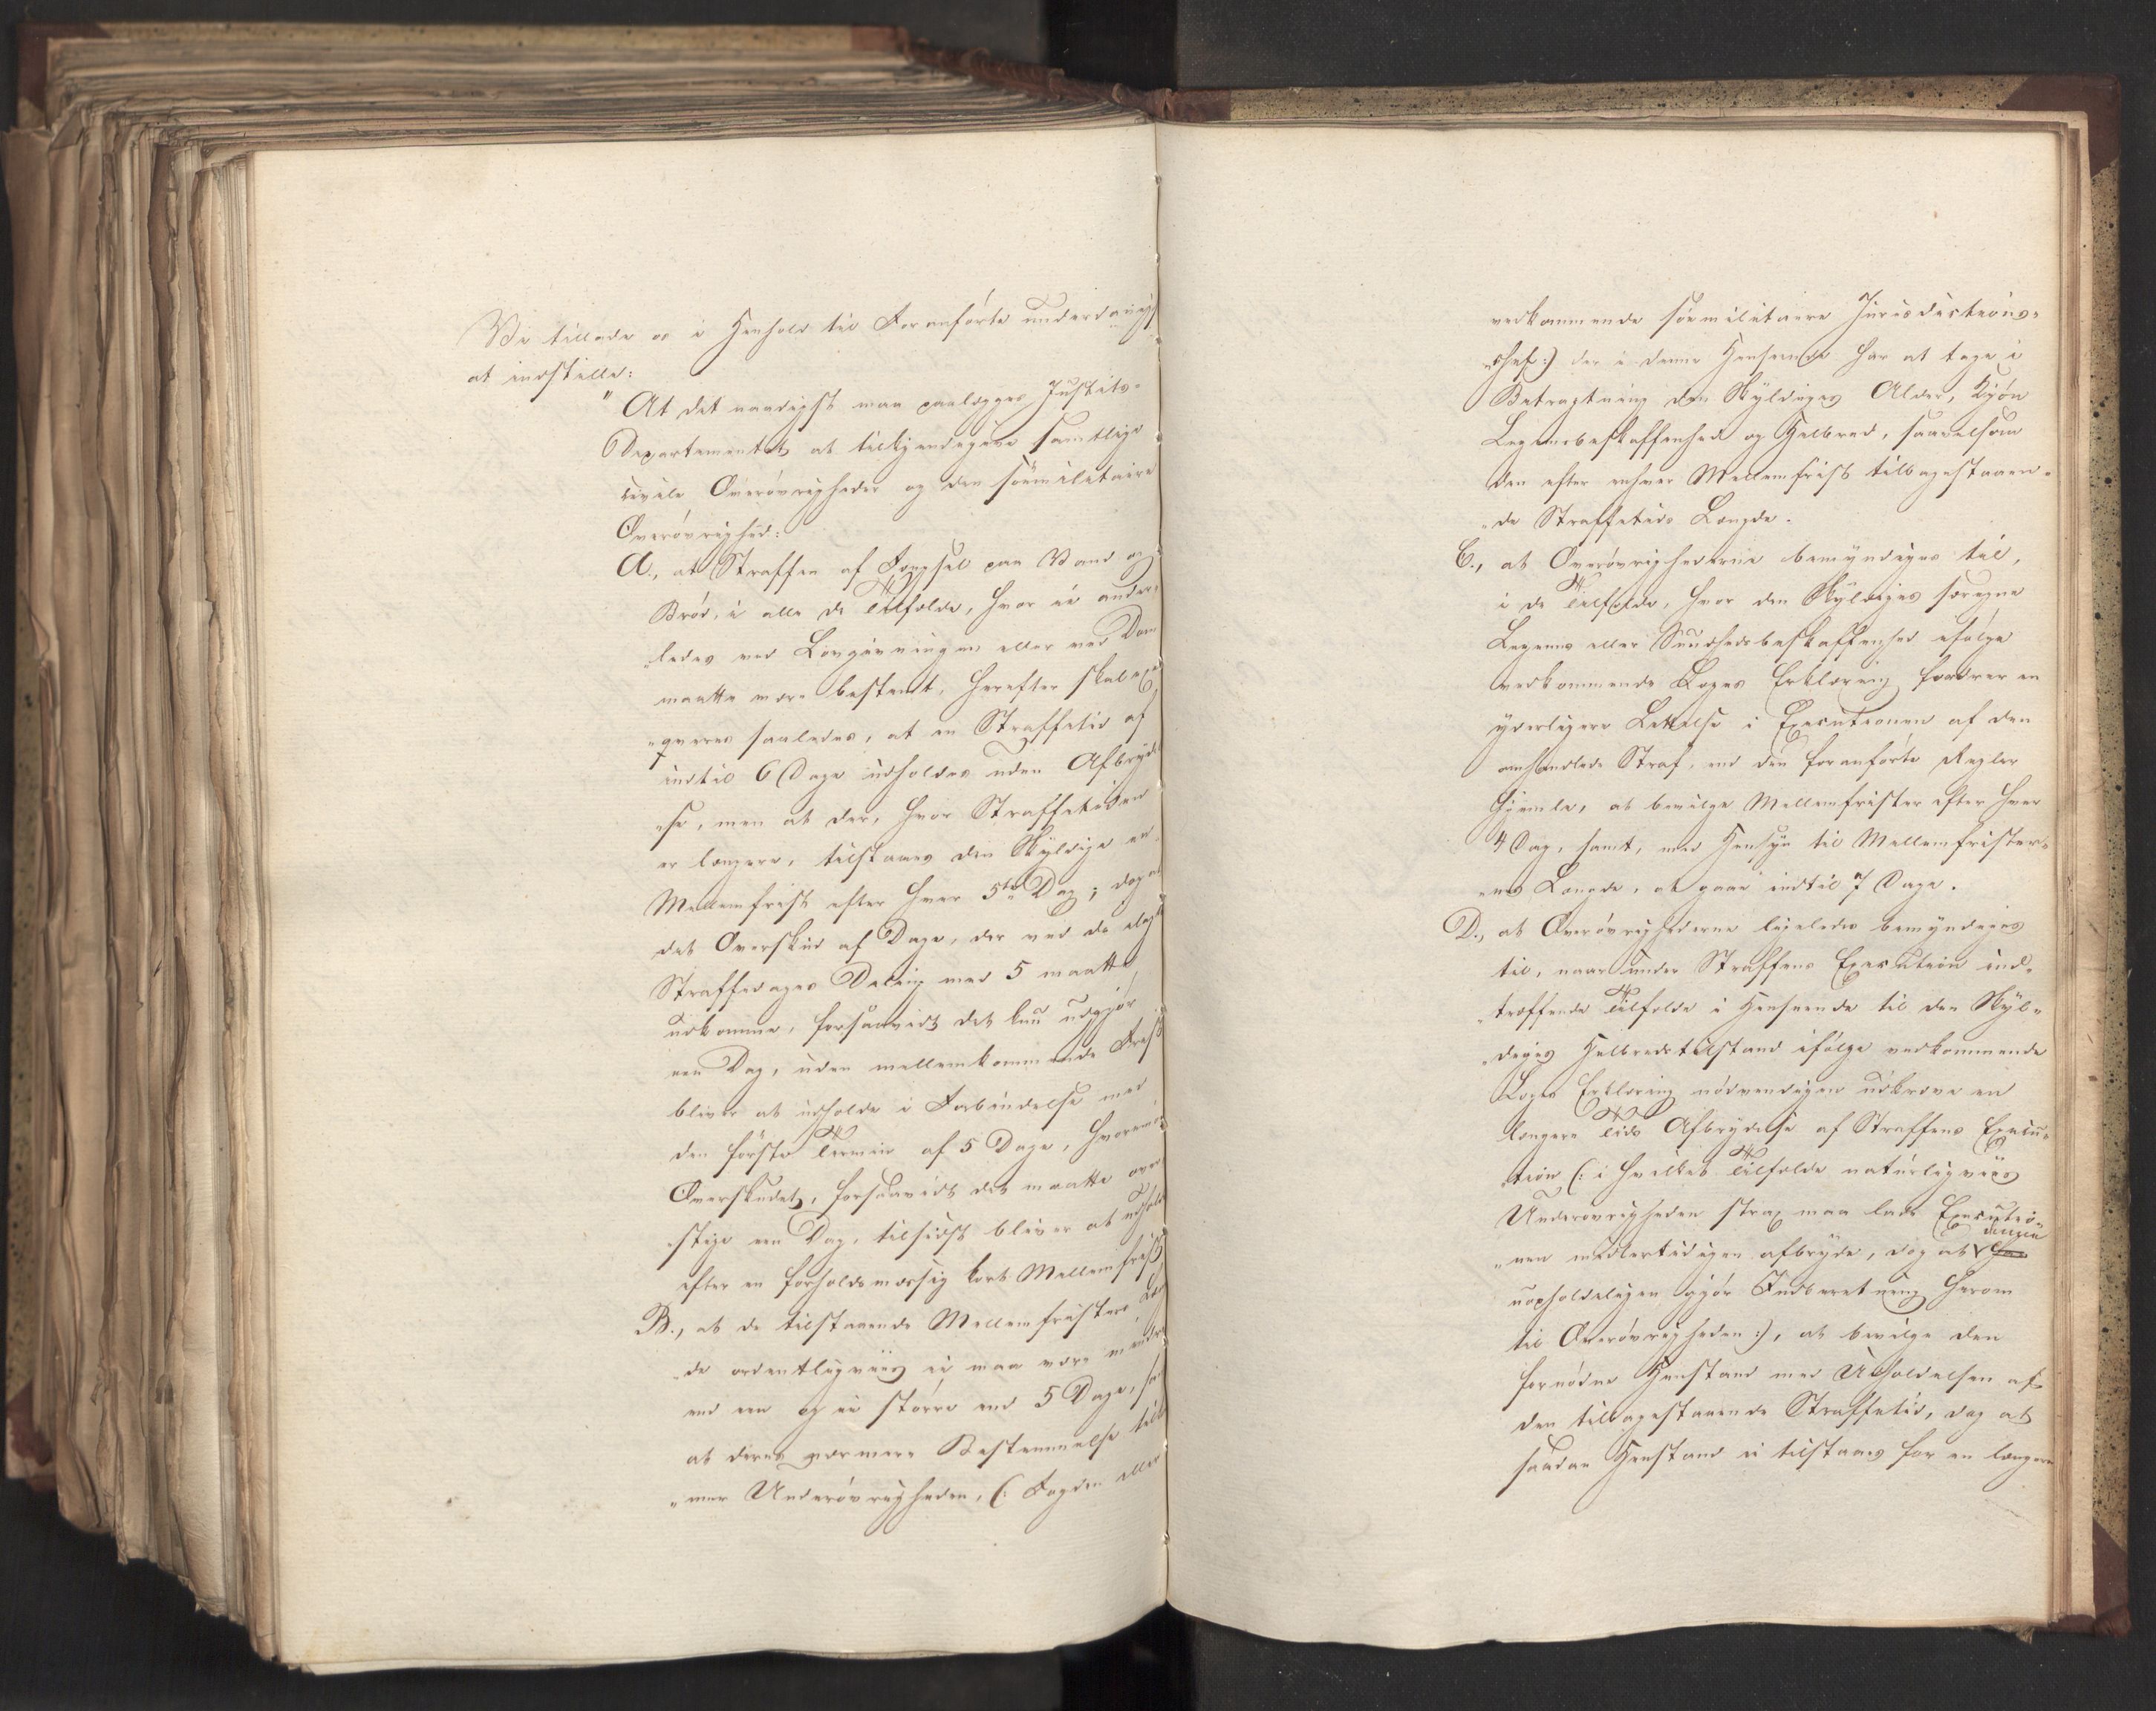 Vi tillade os i Henhold til Foranførte underdanigst
at indstille:
"At det naadigst maa paalægges Justits-
Departementet at tilkjendegive samtlige
civile Overøvrigheder og den søemilitaire
Overøvrighed:
A., at Straffen af Fængsel paa Vand og
Brød, i alle de Tilfælde, hvor ei ander-
"ledes ved Lovgivningen eller ved Dom
maatte være bestemt, herefter skal exe-
"qveres saaledes, at en Straffetid af
indtil 6 Dage udholdes uden Afbrydel-
"se, men at der, hvor Straffetiden
er længere, tilstaaes den Skyldige en
Mellemfrist efter hver 5te Dag; dog at
det Overskud af Dage, der ved de idømte
Straffedages Deling med 5 maatte
udkomme, forsaavidt det kun udgjør
een Dag, uden mellemkommende Frist
bliver at udholde i Forbindelse med
den første Termin af 5 Dage, hvorimod
Overskudet, forsaavidt det maatte over-
"stige een Dag, tilsidst bliver at udholde
efter en forholdsmæssig kort Mellemfrist.
B., at de tilstaaende Mellemfristers Læng-
"de ordentligviis ei maa være mindre
end een og ei større end 5 Dage, samt
at deres nærmere Bestemmelse tilkom-
"mer Underøvrigheden, (: Fogden eller
vedkommende søemilitaire Jurisdictions-
"chef:) der i denne Henseende har at tage i
Betragtning den Skyldiges Alder, Kjøn
Legemsbeskaffenhed og Helbred, saavelsom
den efter enhver Mellemfrist tilbagestaaen-
"de Straffetids Længde.
C., at Overøvrighederne bemyndiges til,
i de Tilfælde, hvor den Skyldiges særegne
Legems eller Sundhedsbeskaffenhed ifølge
vedkommende Læges Erklæring fordrer en
yderligere Lettelse i Executionen af den
omhandlede Straf, end den foranførte Regler
hjemle, at bevilge Mellemfrister efter hver
4 Dag, samt, med Hensyn til Mellemfrister-
"nes Længde, at gaae indtil 7 Dage.
D., at Overøvrighederne ligeledes bemyndiges
til, naar under Straffens Execution ind-
"træffende Tilfælde i Henseende til den Skyl-
"diges Helbredstilstand ifølge vedkommende
Læges Erklæring nødvendigen udkræve en
længere Tids Afbrydelse af Straffens Execu-
"tion (: i hvilket Tilfælde naturligviis
Underøvrigheden strax maa lade Executio-
"nen midlertidigen afbryde, dog at denne
uopholdeligen gjør Indberetning herom
til Overøvrigheden:), at bevilge den
fornødne Henstand med Udholdelsen af
den tilbagestaaende Straffetid, dog at
saadan Henstand ei tilstaaes for en længere